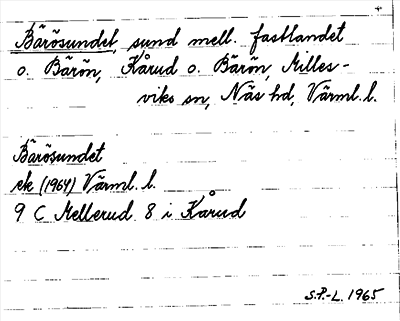 Bärösundet, sund mell. fastlandet
o. Bärön, Kårud o. Bärön, Milles-
viks sn, Näs hd, Värml. l.
Bärösundet
ek (1964) Värml. l.
9 C Mellerud 8 i Kårud
S.P.-L. 1965